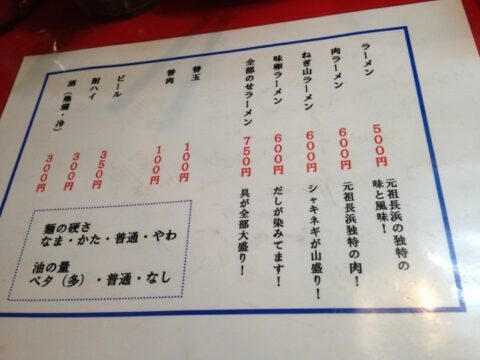 ラーメン 500円 元祖長浜の独特の
味と風味！
肉ラーメン 600円 元祖長浜独特の肉！
ねぎ山ラーメン 600円 シャキネギが山盛り！
味卵ラーメン 600円 だしが染みてます！
全部のせラーメン 750円 具が全部大盛り！
替玉 100円
替肉 100円
ビール 350円
酎ハイ 300円
酒（熱燗・冷） 300円
麺の硬さ
なま・かた・普通・やわ
油の量
ベタ（多）・普通・なし